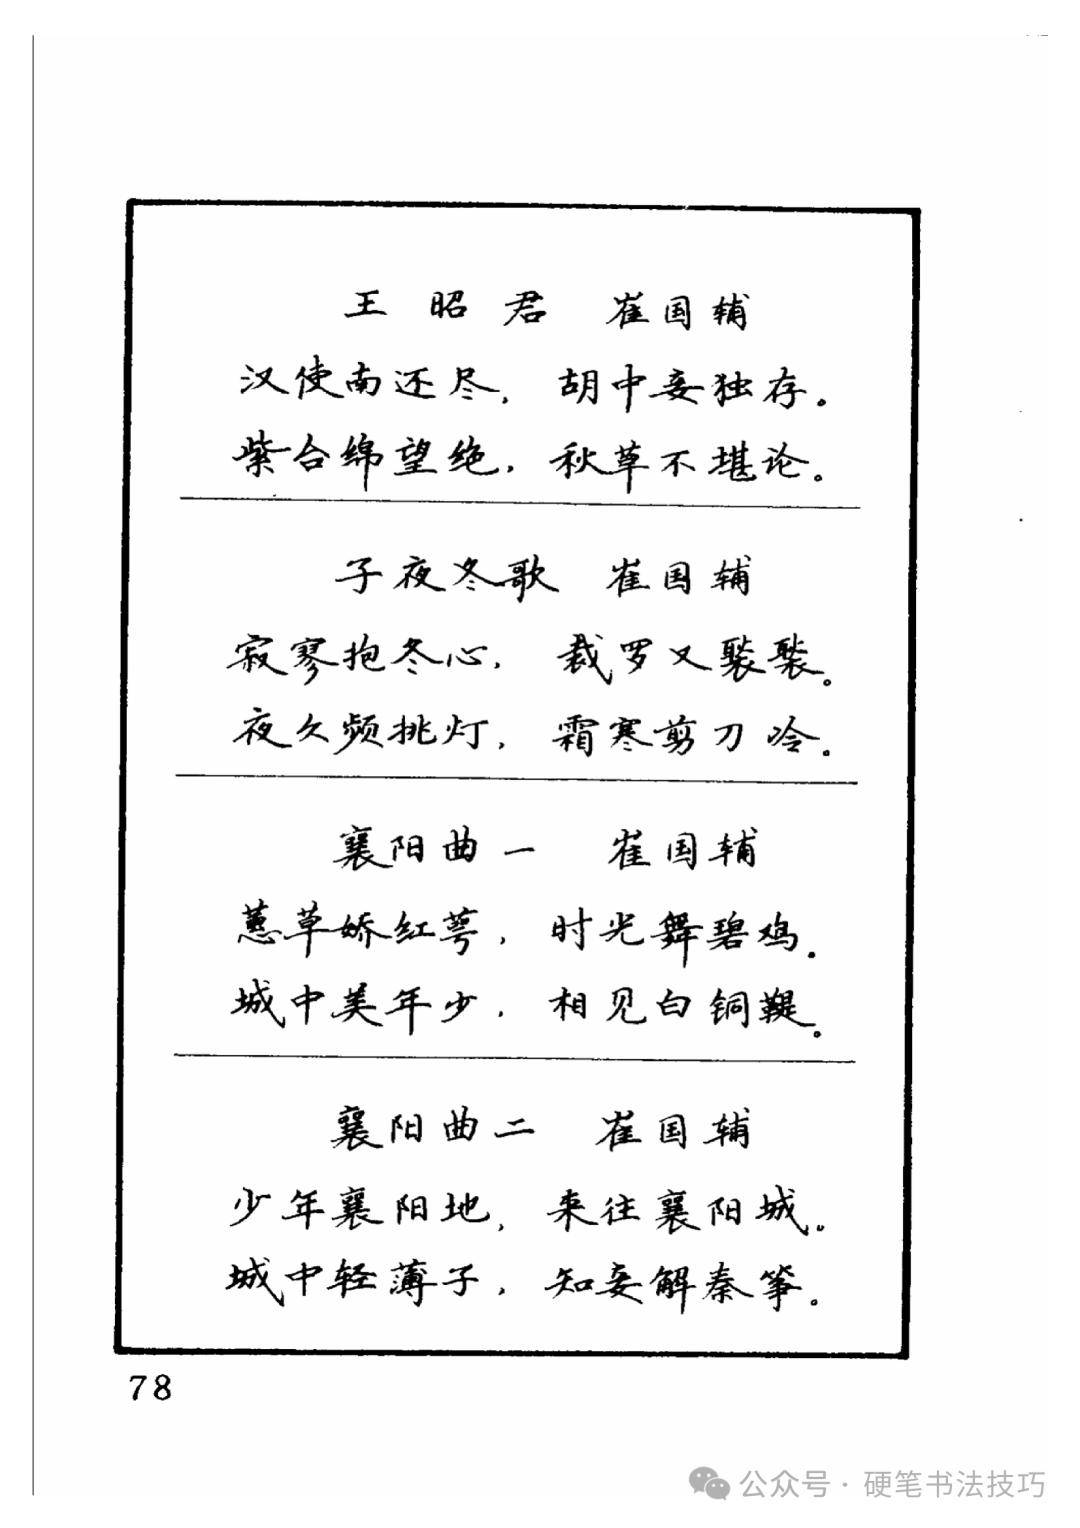 王昭君 崔国辅
汉使南还尽，胡中妾独存。
紫台绵望绝，秋草不堪论。
子夜冬歌 崔国辅
寂寥抱冬心，裁罗又褧褧。
夜久频挑灯，霜寒剪刀冷。
襄阳曲一 崔国辅
蕙草娇红萼，时光舞碧鸡。
城中美年少，相见白铜鞮。
襄阳曲二 崔国辅
少年襄阳地，来往襄阳城。
城中轻薄子，知妾解秦筝。
78
公众号·硬笔书法技巧